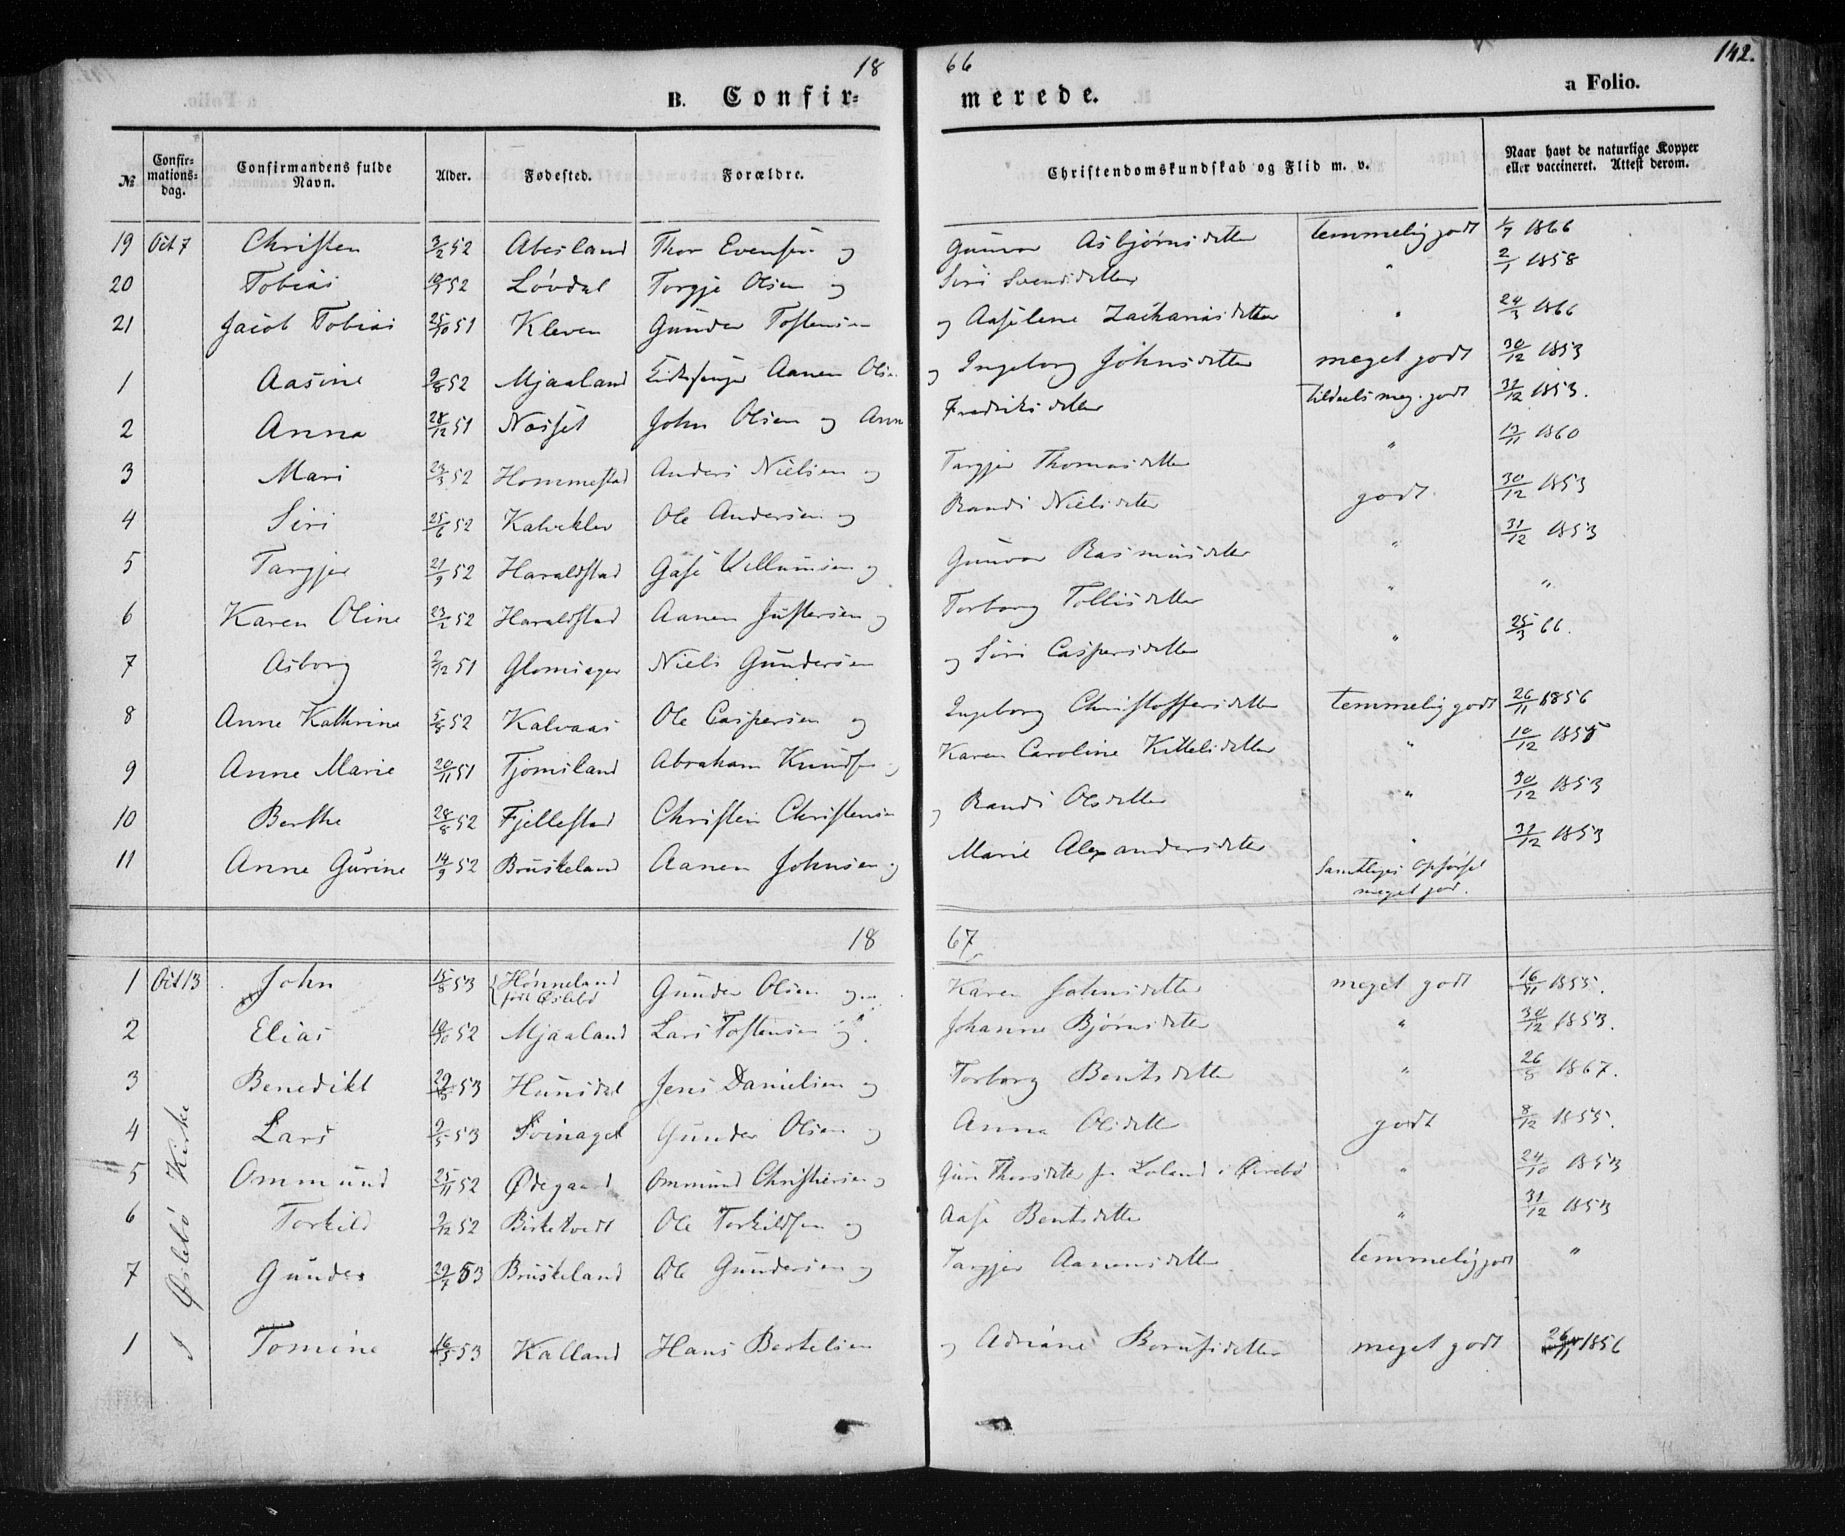 18 66 142.
B. Confir- merede. a Folio.
№ Confir-mations-dag. Confirmandens fulde Navn. Alder. Fødested. Forældre. Christendomskundskab og Flid m. v. Naar havt de naturlige Kopper eller vaccineret. Attest derom.
19 Oct 7 Christen 3/2 52 Abesland Thor Evensen og Gunvor Asbjørnsdatter temmelig godt 1/7 1866
20 Tobias 52 Løvdal Torgje Olsen og Siri Svendsdatter " 2/1 1858
21 Jacob Tobias 25/10 51 Kleven Gunder Tostensen og Aaselene Zachariasdatter " 24/3 1866
1 Aasine 9/8 52 Mjaaland Aanen Olsen og Ingeborg Johnsdatter meget godt 30/12 1853
2 Anna 28/12 51 Nøsset John Olsen og Anne Fredriksdatter tildeels meg. godt 31/12 1853.
3 Mari 23/3 52 Hommestad Anders Nielsen og Targjer Thomasdatter " 13/11 1860
4 Siri 25/6 52 Kalvekler Ole Andersen og Randi Nielsdatter godt 30/12 1853
5 Targjer 21/9 52 Haraldstad Gose Villumsen og Gunvor Rasmusdatter " 31/12 1853
6 Karen Oline 23/2 52 Haraldstad Aanen Justersen og Torborg Tollisdatter " "
7 Asborg 2/12 51 Glomsager Niels Gundersen og Siri Caspersdatter " 25/3 66.
8 Anne Kathrine 5/8 52 Kalvaas Ole Caspersen og Ingeborg Christoffersdatter temmelig godt 26/11 1856
9 Anne Marie 20/11 51 Tjomsland Abraham Knudsen og Karen Caroline Kittelsdatter " 10/12 1855
10 Berthe 28/8 52 Fjellestad Christen Christensen og Randi Olsdatter " 30/12 1853
11 Anne Gurine 14/9 52 Bruskeland Aanen Johnsen og Marie Alexandersdatter " 31/12 1853
Samtliges Opførsel
meget god.
18 67.
1 Oct 13 John 15/8 53 Hønneland født Øslebø Gunder Olsen og Karen Johnsdatter meget godt 16/11 1855.
2 Elias 10/10 52 Mjaaland Lars Tostensen og Johanne Bjørnsdatter " 30/12 1853.
3 Benedikt 29/8 53 Hunsdal Jens Danielsen og Torborg Bentsdatter " 26/8 1867.
4 Lars 2/5 53 Gunder Olsen og Anna Olsdatter godt 8/12 1855.
5 Ommund 25/11 52 Ødegaard Ommund Christiersen og Guri Thorsdatter fr Loland i Øvrebø " 24/10 1853
6 Torkild 2/12 52 Birketvedt Ole Torkildsen og Aase Bentsdatter " 31/12 1853
7 Gunder 29/7 53 Bruskeland Ole Gundersen og Targjer Aanensdatter temmelig godt "
1 Tomine 16/5 53 Kalland Hans Bertelsen og Adriane meget godt 26/11 1856
I Øslebø Kirke